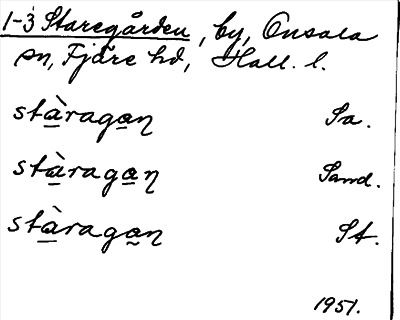 1-3 Staregården, by, Onsala
sn, Fjäre hd, Hall. l.
stàragan̥ Sa.
stàragan̥ Sand.
stàragan̥ St.
1951.